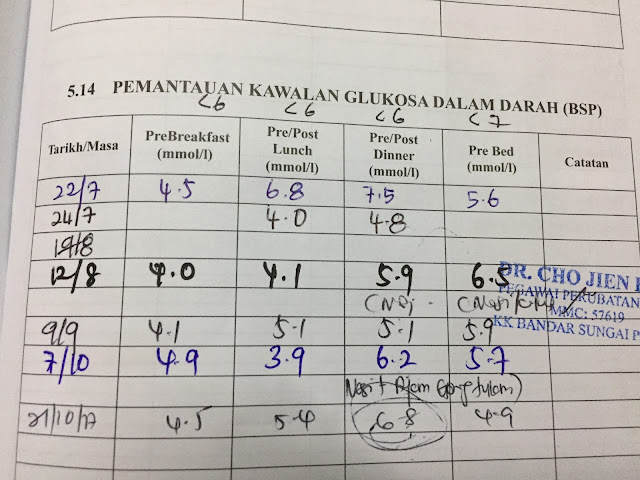 5.14 PEMANTAUAN KAWALAN GLUKOSA DALAM DARAH (BSP)
<6 <6 <6 <7
Tarikh/Masa PreBreakfast (mmol/l) Pre/Post Lunch (mmol/l) Pre/Post Dinner (mmol/l) Pre Bed (mmol/l) Catatan
22/7 4.5 6.8 7.5 5.6
24/7 4.0 4.8
19/8
12/8 4.0 4.1 5.9 6.5
DR. CHO JIEN
PEGAWAI PERUBATAN
MMC: 57619
KK BANDAR SUNGAI P
9/9 4.1 5.1 5.1 5.9
7/10 4.9 3.9 6.2 5.7
Nasi + Ayam
21/10/17 4.5 5.4 6.8 4.9